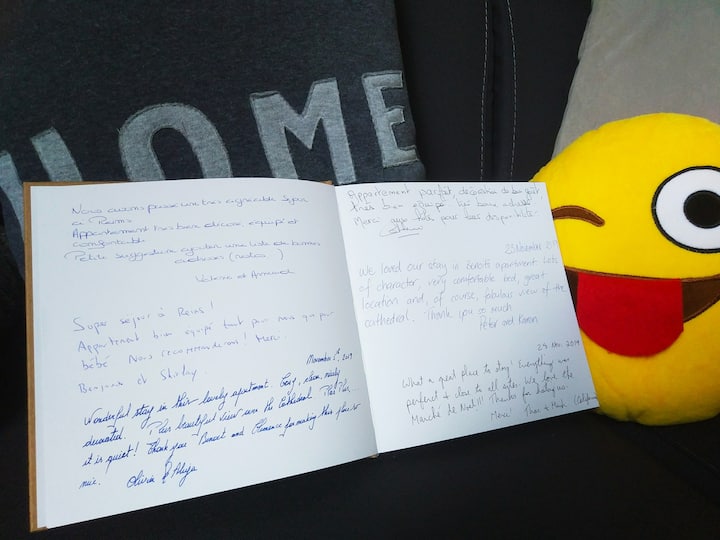 HOME
Nous avons passé un très agréable séjour
à Reims
Appartement très bien décoré, équipé et
confortable
Petite suggestion ajouter une liste de bonnes
adresses (restos)
et
Super séjour à Reims!
Appartement bien équipé tant pour nous que pour
bébé. Nous recommandons! Merci.
Benjamin et Shirley
November 1st, 2019
Wonderful stay in this lovely apartment. Cosy, clean, nicely
decorated. Plus beautiful view over the Cathedral. Plus Plus...
it is quiet! Thank you Benoit and Clémence for making this place so
nice. Olivia & Aliya
Appartement parfait, décoration de bon goût
très bien équipé, literie
Merci pour
23 November
We loved our stay in apartment. Lots
of character, very comfortable bed, great
location and, of course, fabulous view of the
cathedral. Thank you so much
Peter and Karen
29. Nov. 2019
What a great place to stay! Everything was
perfect & close to all sites. We love the
Marché de Noël!! Thanks for having us.
Merci!